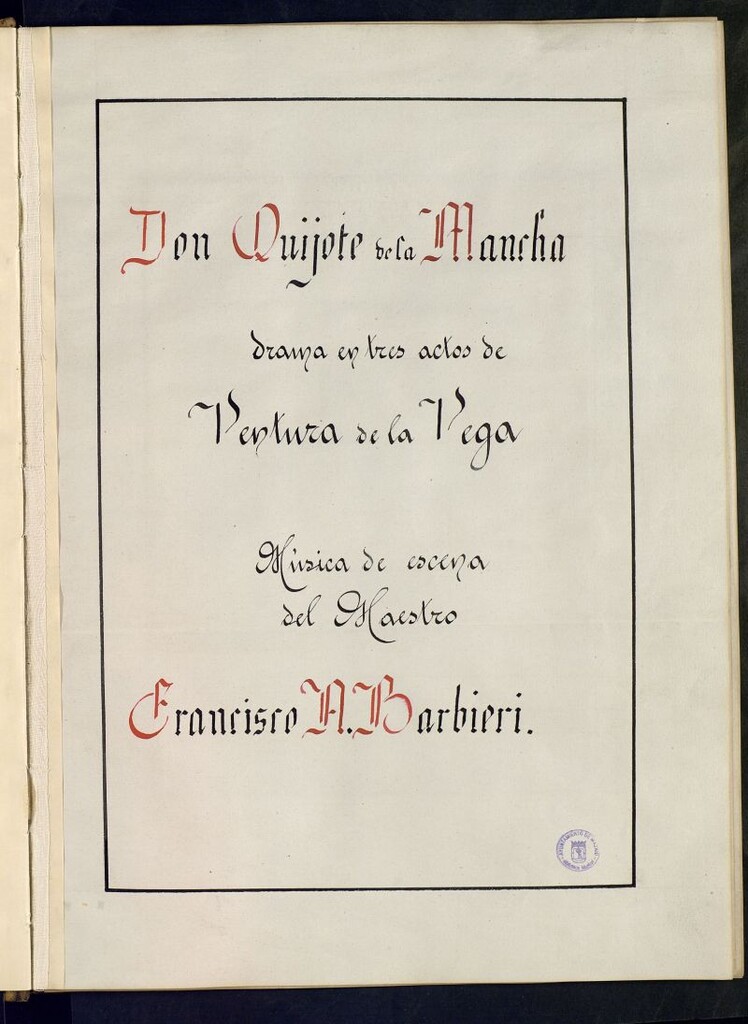 Don Quijote de la Mancha
drama en tres actos de
Ventura de la Vega
Música de escena
del Maestro
Francisco A. Barbieri.
AYUNTAMIENTO DE MADRID